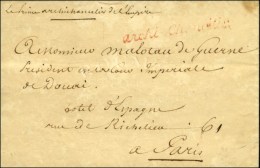 le prince archichancelier de l'Empire
A Monsieur Maloteau de Guerne
Président en la cour Impériale
de Douai.
hotel d'Espagne
rue de Richelieu 61
a Paris